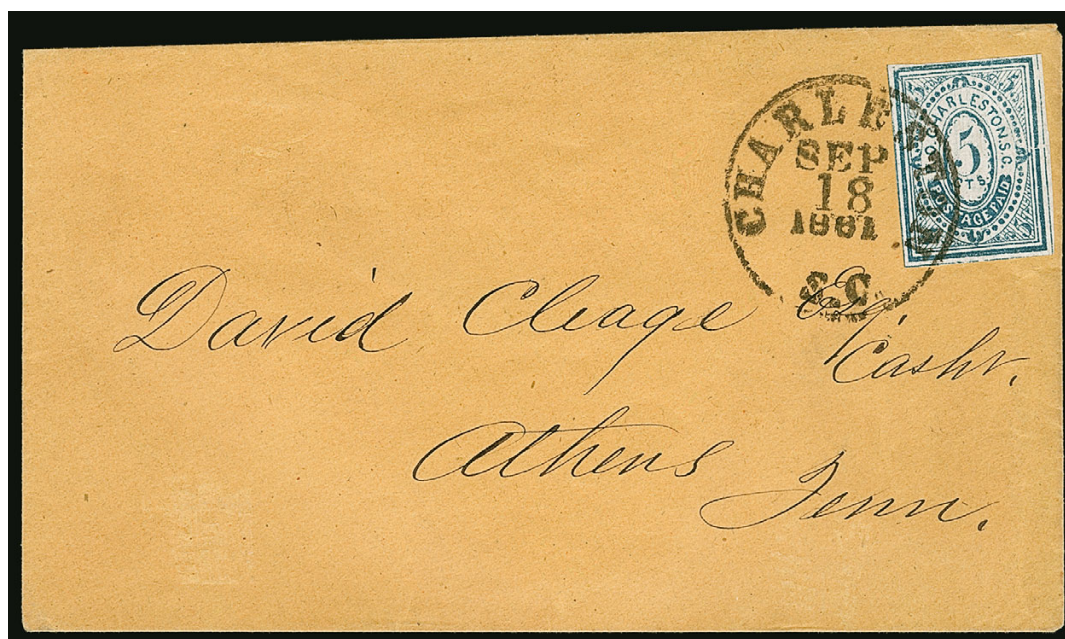 CHARLESTON
SEP
18
1861
S.C
P.O. CHARLESTON, S.C.
5
CTS.
POSTAGE PAID
5 5 5 5
David Cleage Esq.
Cashr.
Athens
Tenn.